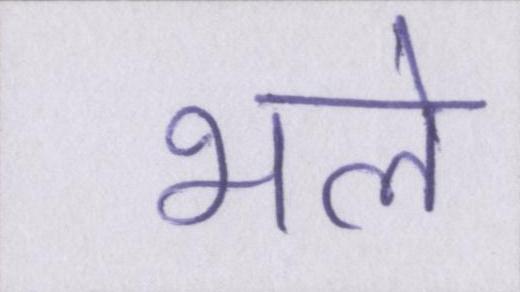 भले